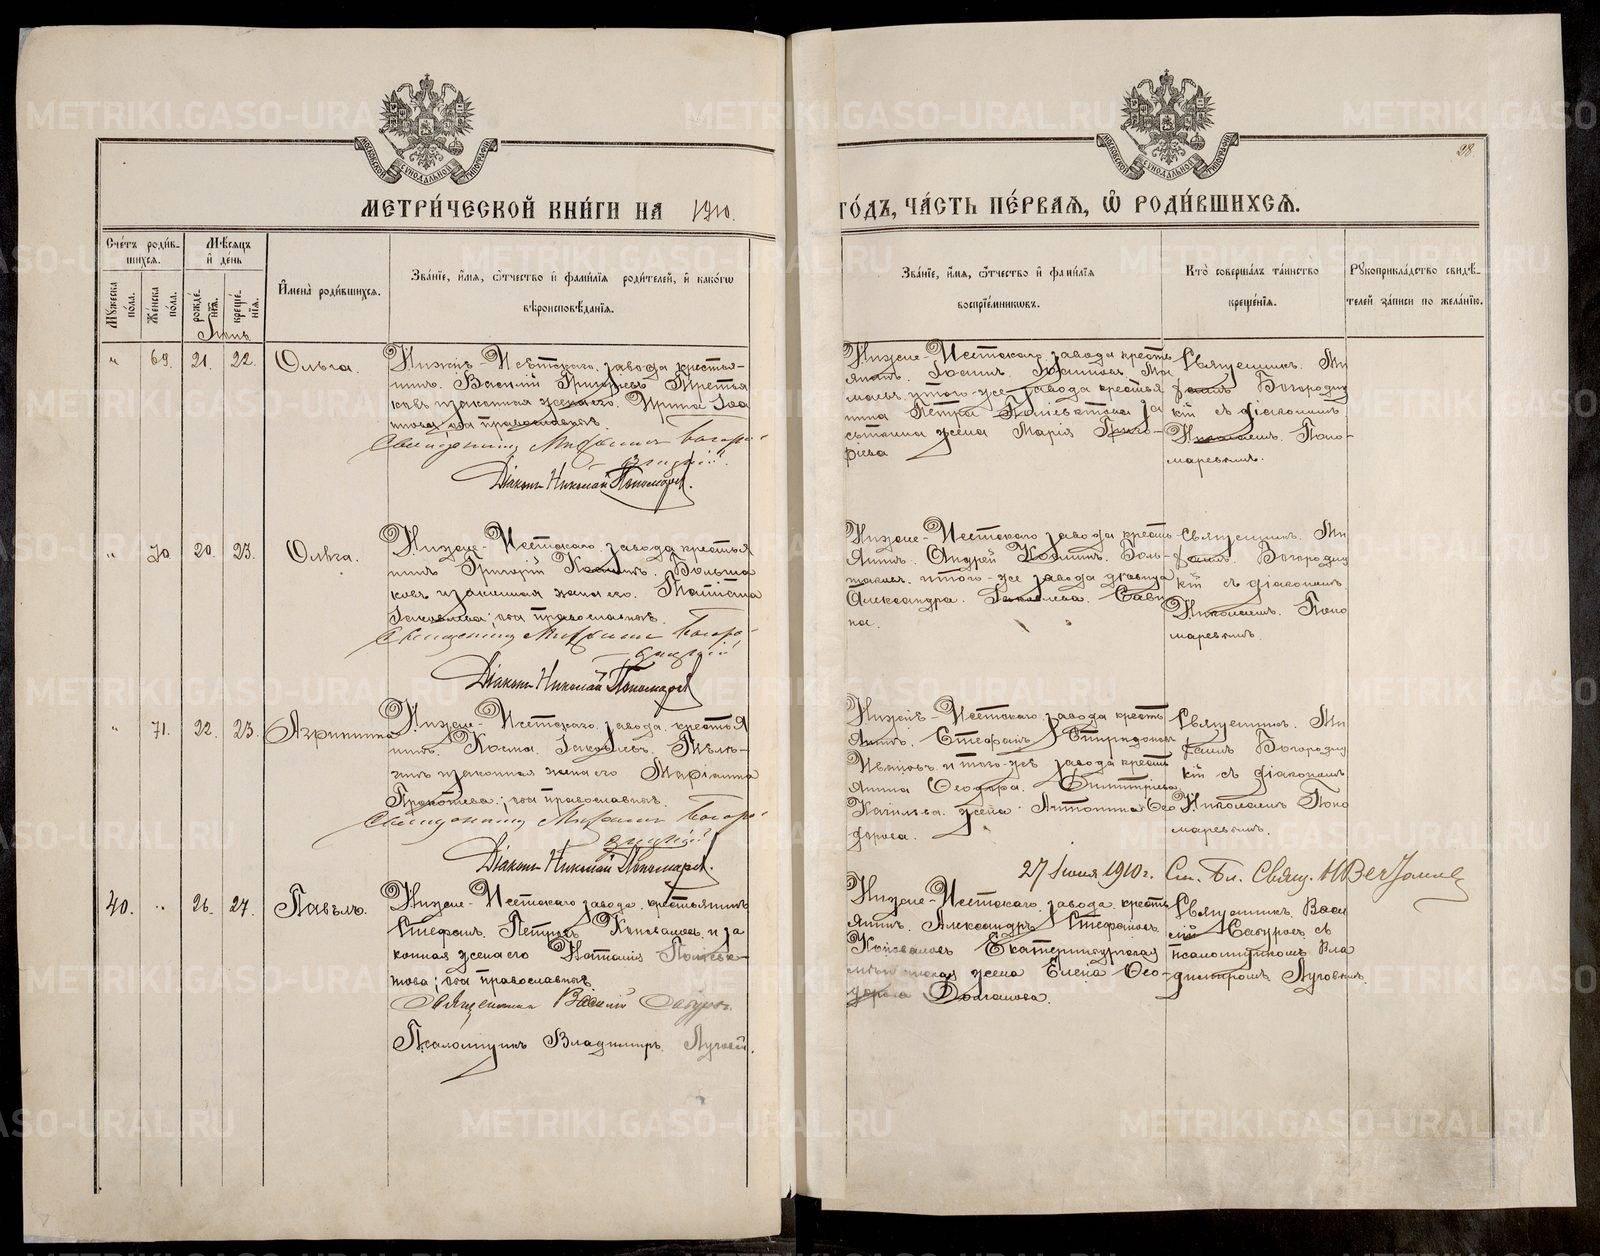 28.
МЕТРИ́ЧЕСКОЙ КНИ́ГИ НА 1910.
ГО́ДЪ, ЧА́СТЬ ПЕ́РВАЯ, Ѡ РОДИ́ВШИХСЯ.
Сче́тъ роди́в-
шихся.
Мѣ́сяцъ
и̓ де́нь
Мꙋ́жеска по́ла.
Же́нска по́ла.
рожде́-
нїя.
креще́-
нїя.
И̓мена̀ роди́вшихся.
Зва́нїе, и̓́мя, ѻ҆́тчество и̓ фами́лїя роди́телей, и̓ како́гѡ
вѣроисповѣ́данїя.
Зва́нїе, и̓́мя, ѻ҆́тчество и̓ фами́лїя
воспрїе́мниковъ.
Кто̀ соверша́лъ та́инство
креще́нїя.
Рꙋкоприкла́дство свидѣ́-
телей за́писи по жела́нїю.
Іюнь
" 69. 21. 22. Ольга.
Нижне-Исетскаго завода крестья-
нинъ Василій Григорьевъ Третья
ковъ и законная жена его Ирина Іоа
нова, оба православные.
Священникъ Михаилъ Богоро-
дицкій.
Діаконъ Николай Пономаревъ.
Нижне-Исетскаго завода кресть
янинъ Іоаннъ
и того-же завода крестья
нина Петра
жена Марія Григо-
рьева
Священникъ Ми
хаилъ Богородиц
кій съ діакономъ
Николаемъ Поно-
маревымъ.
" 70 20. 23. Ольга.
Нижне-Исетскаго завода крестья
нинъ Григорій Косминъ Больша
ковъ и законная жена его Татіана
Іаковлева; оба православные.
Священникъ Михаилъ Богоро-
дицкій
Діаконъ Николай Пономаревъ
Нижне-Исетскаго завода кресть
янинъ Андрей Косминъ Боль-
шаковъ и того-же завода дѣвица
Александра Іаковлева Сави
на.
Священникъ Ми
хаилъ Богородиц
кій съ діакономъ
Николаемъ Поно
маревымъ.
" 71. 22. 23. Агрипина
Нижне-Исетскаго завода крестья
нинъ Косма Іаковлевъ
законная жена его Маріанна
Прокопьева; оба православные.
Священникъ Михаилъ Богоро-
дицкій
Діаконъ Николай Пономаревъ.
Нижне-Исетскаго завода кресть
янинъ Стефанъ Спиридоновъ
Ивановъ и того-же завода кресть
янина Ѳеодора Димитріева
жена Антонина Ѳео
дорова.
Священникъ Ми
хаилъ Богородиц
кій съ діакономъ
Николаемъ Поно
маревымъ.
27 Іюня 1910 г. См. Бл. Свящ.
40. " 26. 27. Павелъ.
Нижне-Исетскаго завода крестьянинъ
Стефанъ Петровъ Коноваловъ и за
конная жена его Наталія
оба православные.
Священникъ Василій Сабуровъ.
Псаломщикъ Владиміръ Луговыхъ.
Нижне-Исетскаго завода кресть
янинъ Александръ Стефановъ
Коноваловъ Екатеринбургская
жена Елена Ѳео-
дорова Долганова.
Священникъ Васи
лій Сабуровъ съ
псаломщикомъ Вла
диміромъ Луговымъ.
METRIKI.GASO-URAL.RU